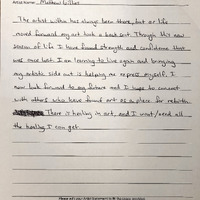 Artist Name: Matthew Wilker
The artist within has always been there, but as life
moved forward my art took a back seat. Through this new
season of life I have found strength and confidence that
was once lost. I am learning to live again and bringing
my artistic side out is helping me express myself. I
now look forward to my future and I hope to connect
with others who have found art as a place for rebirth.
There is healing in art, and I want/need all
the healing I can get.
Please edit your Artist Statement to fit the space provided.